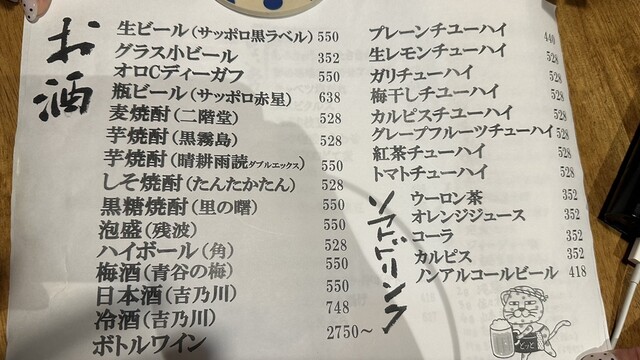 お酒
生ビール(サッポロ黒ラベル) 550
グラス小ビール 352
オロCディーガフ 550
瓶ビール(サッポロ赤星) 638
麦焼酎(二階堂) 528
芋焼酎(黒霧島) 528
芋焼酎(晴耕雨読ダブルエックス) 550
しそ焼酎(たんたかたん) 528
黒糖焼酎(里の曙) 550
泡盛(残波) 550
ハイボール(角) 528
梅酒(青谷の梅) 550
日本酒(吉乃川) 550
冷酒(吉乃川) 748
ボトルワイン 2750~
プレーンチューハイ 440
生レモンチューハイ 528
ガリチューハイ 528
梅干しチューハイ 528
カルピスチューハイ 528
グレープフルーツチューハイ 528
紅茶チューハイ 528
トマトチューハイ 528
ソフトドリンク
ウーロン茶 352
オレンジジュース 352
コーラ 352
カルピス 352
ノンアルコールビール 418